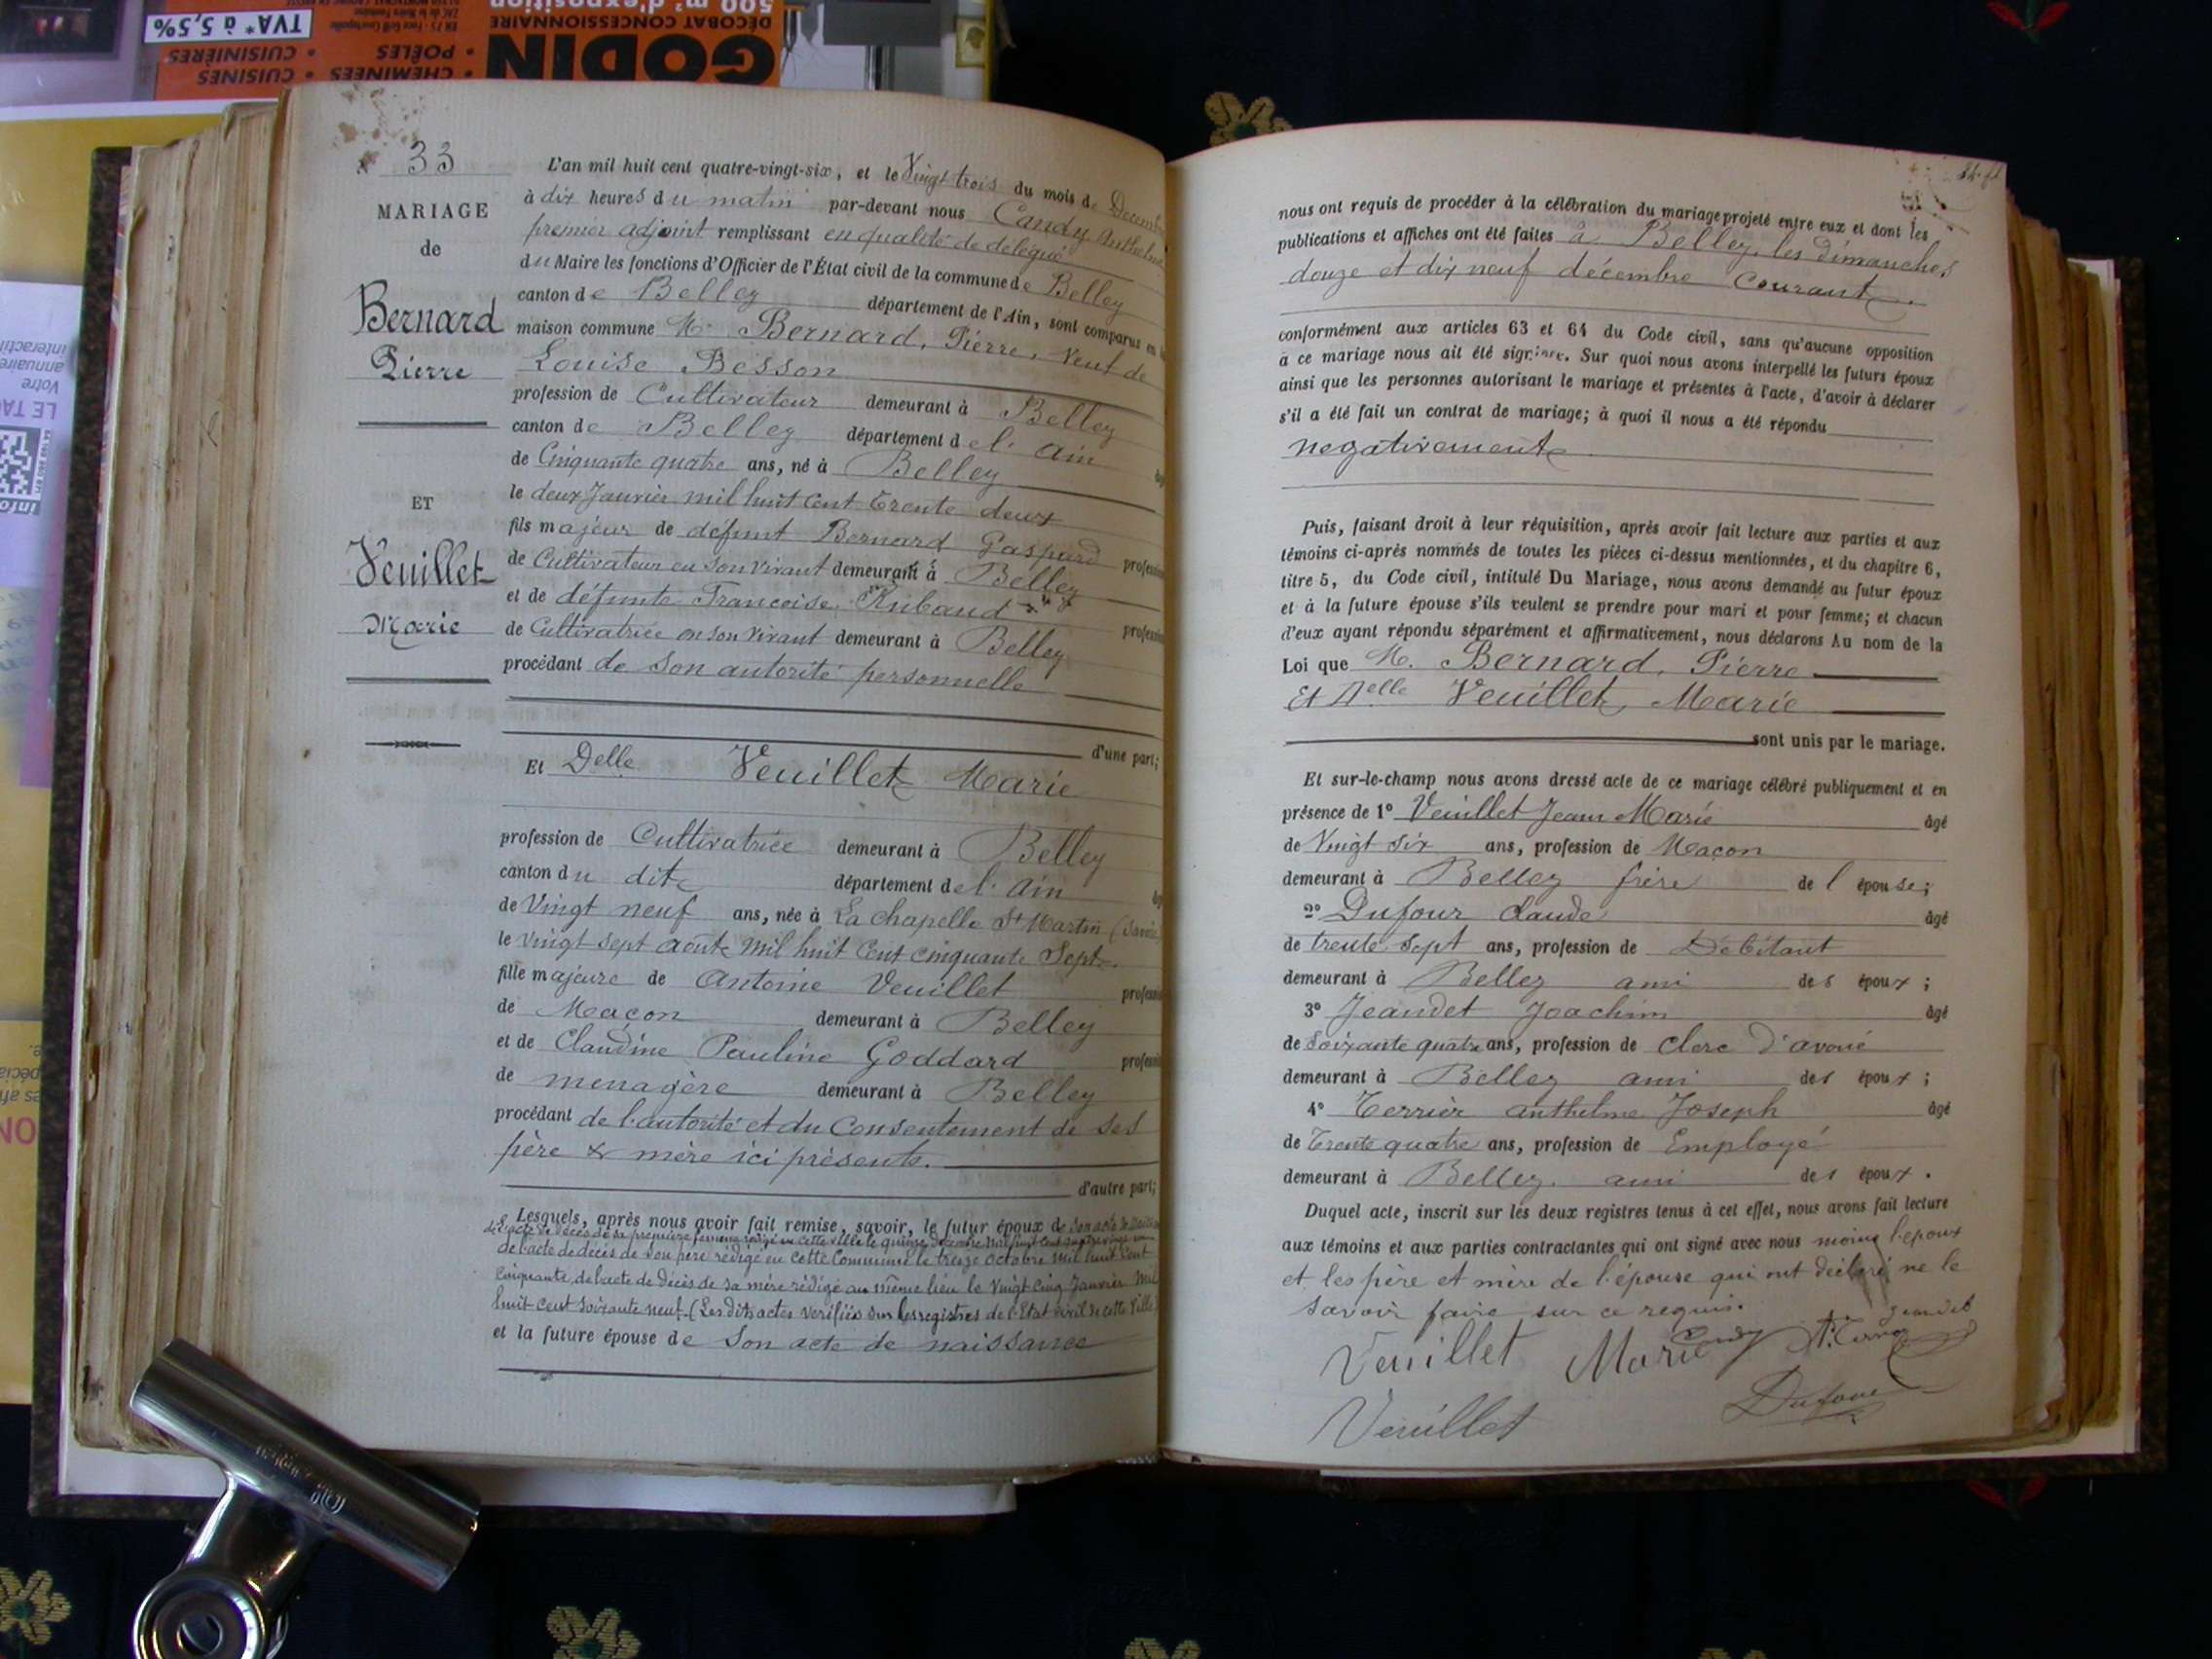 500 m² d'exposition
DÉCOBAT CONCESSIONNAIRE
GODIN
TVA* à 5,5%
• CHEMINÉES • CUISINES
• POÊLES • CUISINIÈRES
N° 33
MARIAGE
de
Bernard
Pierre
ET
Veuillet
Marie
L'an mil huit cent quatre-vingt-six, et le Vingt trois du mois de Décembre
à dix heures du matin par-devant nous Candy Anthelme
premier adjoint remplissant en qualité de délégué
du Maire les fonctions d'Officier de l'État civil de la commune de Belley
canton de Belley département de l'Ain, sont comparus en la
maison commune M. Bernard, Pierre, Veuf de
Louise Besson
profession de Cultivateur demeurant à Belley
canton de Belley département de l'Ain
de Cinquante quatre ans, né à Belley
le deux Janvier mil huit cent trente deux
fils majeur de défunt Bernard Gaspard profession
de Cultivateur en son vivant demeurant à Belley
et de défunte Françoise Ribaud profession
de Cultivatrice en son vivant demeurant à Belley
procédant de son autorité personnelle
d'une part;
Et Delle Veuillet Marie
profession de Cultivatrice demeurant à Belley
canton du dit département de l'Ain
de Vingt neuf ans, née à La Chapelle St Martin (Savoie)
le vingt sept août mil huit cent cinquante sept
fille majeure de Antoine Veuillet profession
de Maçon demeurant à Belley
et de Claudine Pauline Goddard profession
de menagère demeurant à Belley
procédant de l'autorité et du Consentement de ses
père & mère ici présents.
d'autre part;
Lesquels, après nous avoir fait remise, savoir, le futur époux de son acte de
de l'acte de décès de sa première femme rédigé en cette ville le quinze décembre mil huit cent
de l'acte de décès de son père rédigé en cette Commune le treize octobre mil huit cent
cinquante, de l'acte de décès de sa mère rédigé au même lieu le Vingt cinq Janvier mil
huit cent soixante neuf. (Les dits actes vérifiés sur les registres de l'Etat civil de cette Ville)
et la future épouse de son acte de naissance
nous ont requis de procéder à la célébration du mariage projeté entre eux et dont les
publications et affiches ont été faites à Belley, les dimanches
douze et dix neuf décembre courant.
conformément aux articles 63 et 64 du Code civil, sans qu'aucune opposition
à ce mariage nous ait été signifiée. Sur quoi nous avons interpellé les futurs époux
ainsi que les personnes autorisant le mariage et présentes à l'acte, d'avoir à déclarer
s'il a été fait un contrat de mariage; à quoi il nous a été répondu
negativement
Puis, faisant droit à leur réquisition, après avoir fait lecture aux parties et aux
témoins ci-après nommés de toutes les pièces ci-dessus mentionnées, et du chapitre 6,
titre 5, du Code civil, intitulé Du Mariage, nous avons demandé au futur époux
et à la future épouse s'ils veulent se prendre pour mari et pour femme; et chacun
d'eux ayant répondu séparément et affirmativement, nous déclarons Au nom de la
Loi que M. Bernard, Pierre
Et Delle Veuillet, Marie
sont unis par le mariage.
Et sur-le-champ nous avons dressé acte de ce mariage célébré publiquement et en
présence de 1° Veuillet Jean Marie âgé
de Vingt six ans, profession de Maçon
demeurant à Belley frère de l'épouse;
2° Dufour Claude âgé
de trente sept ans, profession de Débitant
demeurant à Belley ami des époux;
3° Jeandet Joachim âgé
de Soixante quatre ans, profession de clerc d'avoué
demeurant à Belley ami des époux;
4° Terrier anthelme Joseph âgé
de Trente quatre ans, profession de Employé
demeurant à Belley ami des époux.
Duquel acte, inscrit sur les deux registres tenus à cet effet, nous avons fait lecture
aux témoins et aux parties contractantes qui ont signé avec nous moins l'époux
et les père et mère de l'épouse qui ont déclaré ne le
savoir faire sur ce requis.
Jeandet
Veuillet Marie Candy
Dufour
Veuillet